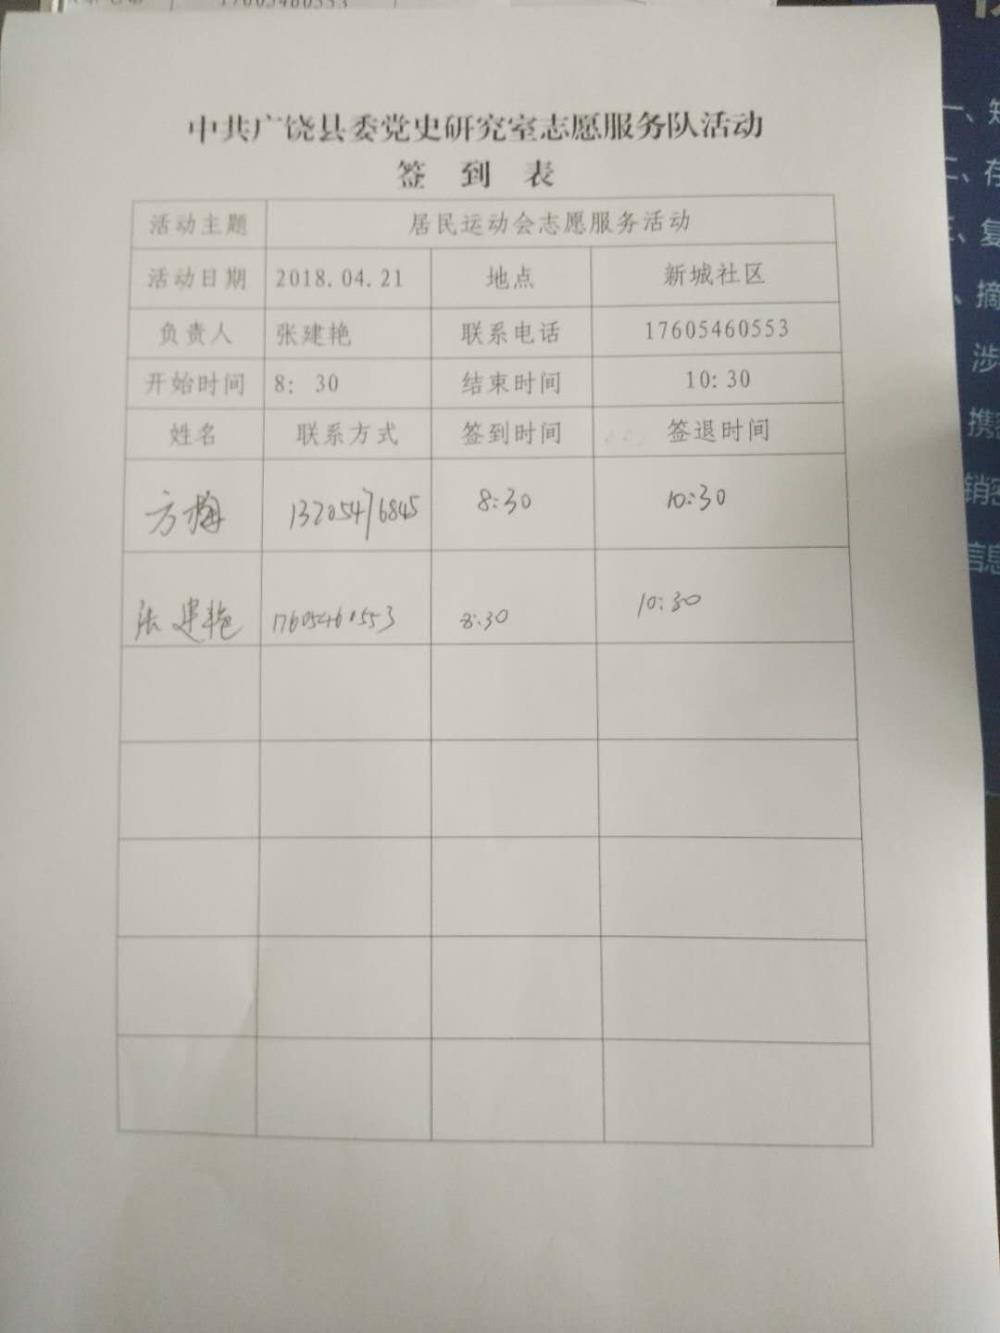 17605460553
中共广饶县委党史研究室志愿服务队活动
签 到 表
活动主题 居民运动会志愿服务活动
活动日期 2018.04.21 地点 新城社区
负责人 张建艳 联系电话 17605460553
开始时间 8: 30 结束时间 10:30
姓名 联系方式 签到时间 签退时间
方梅 13205476845 8:30 10:30
张建艳 17605460553 8:30 10:30
一、知
二、存
三、复
、摘
涉
携
销密
信息